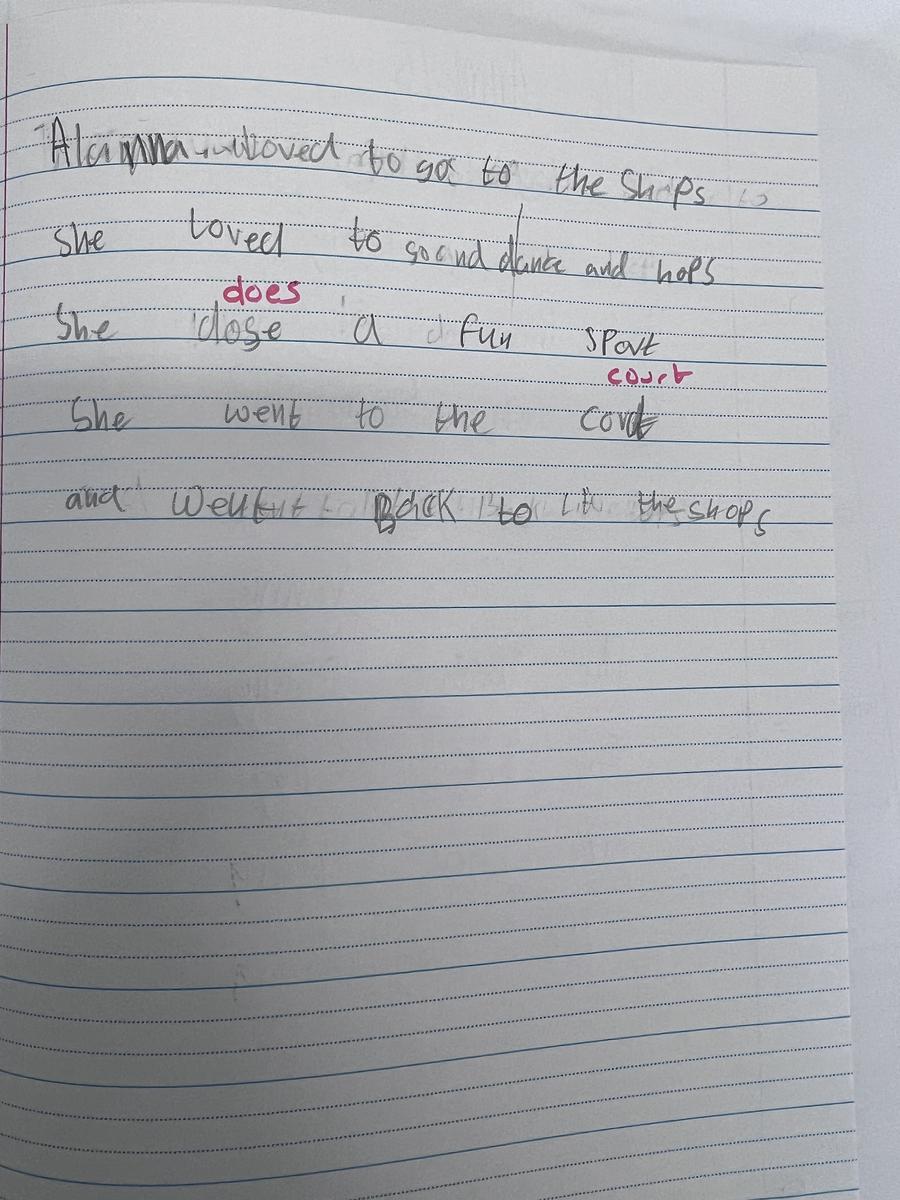 Alanna loved to go to the Shops
She loved to go and dance and hops
does
She dose a fun sport
court
She went to the cort
and went Back to the shops